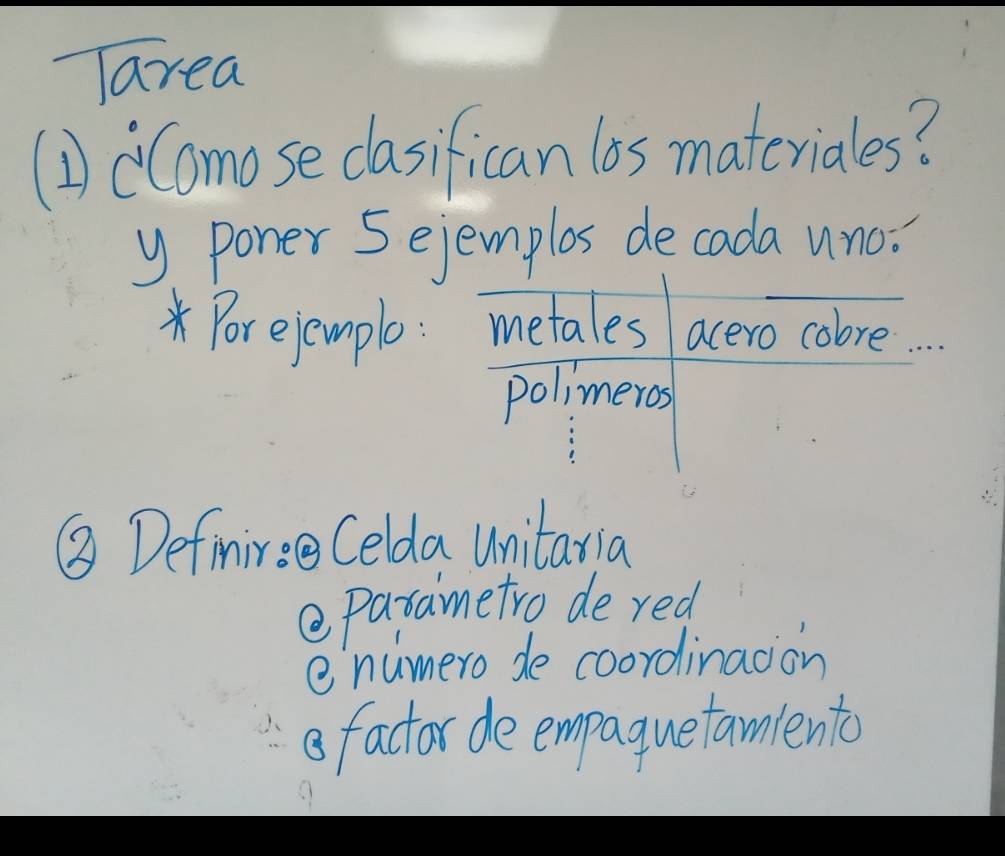 Tarea
(1) ¿Como se clasifican los materiales?
y poner 5 ejemplos de cada uno:
* Por ejemplo: metales | acero cobre....
polímeros
② Definir: Celda Unitaria
parámetro de red
número de coordinación
factor de empaquetamiento